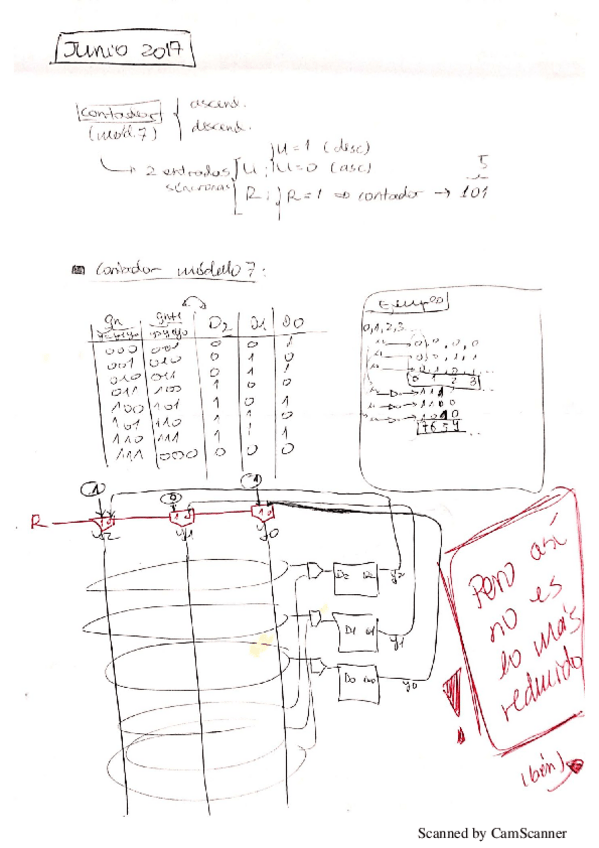 JUNIO 2017
contador { ascend.
(mód.7) descend.
2 entradas síncronas
U; U=1 (desc)
U=0 (asc)
R; R=1 ⇒ contador → 101
5
Contador módulo 7:
qn qn+1 D2 D1 D0
000 001 0 0 1
001 010 0 1 0
010 011 0 1 1
011 100 1 0 0
100 101 1 0 1
101 110 1 1 0
110 111 1 1 1
111 000 0 0 0
Ejemplo
0,1,2,3...
0 1 2 3
7 6 5 4 ...
1 0 1
R
y2 y1 y0
D2 y2
D1 y1
D0 y0
Pero así
no es
lo más
reducido
(bien)
Scanned by CamScanner